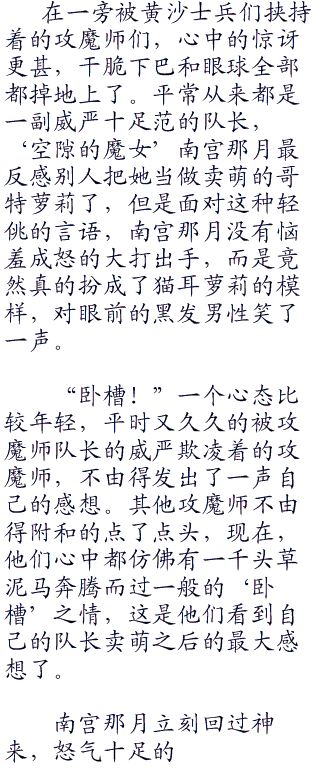 在一旁被黄沙士兵们挟持
着的攻魔师们，心中的惊讶
更甚，干脆下巴和眼球全部
都掉地上了。平常从来都是
一副威严十足范的队长，
‘空隙的魔女’南宫那月最
反感别人把她当做卖萌的哥
特萝莉了，但是面对这种轻
佻的言语，南宫那月没有恼
羞成怒的大打出手，而是竟
然真的扮成了猫耳萝莉的模
样，对眼前的黑发男性笑了
一声。
“卧槽！”一个心态比
较年轻，平时又久久的被攻
魔师队长的威严欺凌着的攻
魔师，不由得发出了一声自
己的感想。其他攻魔师不由
得附和的点了点头，现在，
他们心中都仿佛有一千头草
泥马奔腾而过一般的‘卧
槽’之情，这是他们看到自
己的队长卖萌之后的最大感
想了。
南宫那月立刻回过神
来，怒气十足的